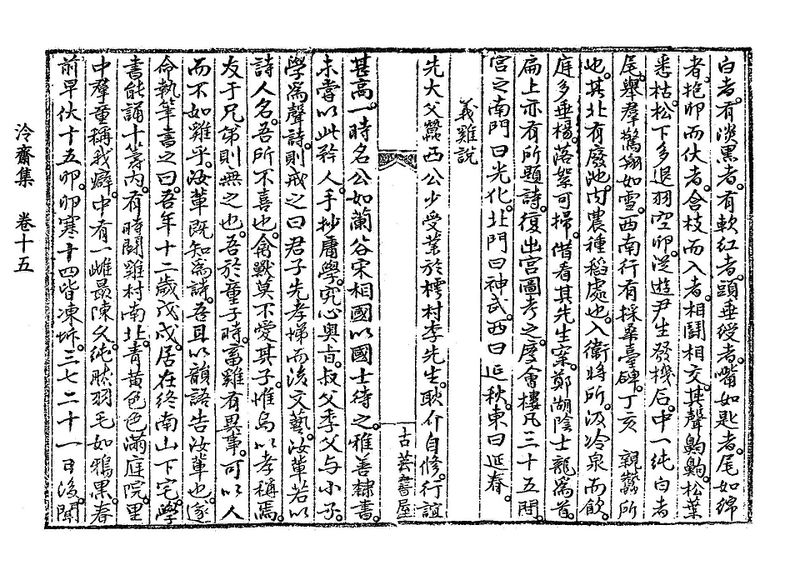 白者。有淡黑者。有軟紅者。頭垂綬者。嘴如匙者。尾如綿
者。抱卵而伏者。含枝而入者。相鬪相交。其聲鷠鷠。松葉
悉枯。松下多退羽空卵。從遊尹生發機后。中一純白者
尾。擧羣驚翔如雪。西南行有採桑臺碑。丁亥 親蠶所
也。其北有廢池。內農種稻處也。入衛將所。汲冷泉而飮。
庭多垂楊。落絮可掃。借看其先生案。鄭湖陰士龍爲首
扁上亦有所題詩。復出宮圖考之。慶會樓凡三十五間
宮之南門曰光化。北門曰神武。西曰延秋。東曰延春。
義雞說
先大父蠶西公少受業於樗村李先生。耿介自修。行誼
古芸書屋
甚高。一時名公如蘭谷宋相國以國士待之。雅善隸書。
未嘗以此矜人。手抄庸學。究心奧旨。叔父季父與小子
學爲聲詩。則戒之曰君子先孝悌而後文藝。汝輩若以
詩人名。吾所不喜也。禽獸莫不愛其子。惟烏以孝稱焉
友于兄弟則無之也。吾於童子時。畜雞有異事。可以人
而不如雞乎。汝輩旣知爲詩。吾且以韻語告汝輩也。遂
命執筆書之曰。吾年十二歲戊戌。居在終南山下宅。學
書能誦十篇內。有時鬪雞村南北。靑黃色色滿庭院。里
中羣童稱我癖。中有一雌最陳久。純然羽毛如鴉黑。春
前早伏十五卵。卵寒十四皆凍坼。三七二十一日後。聞
泠齋集 卷十五